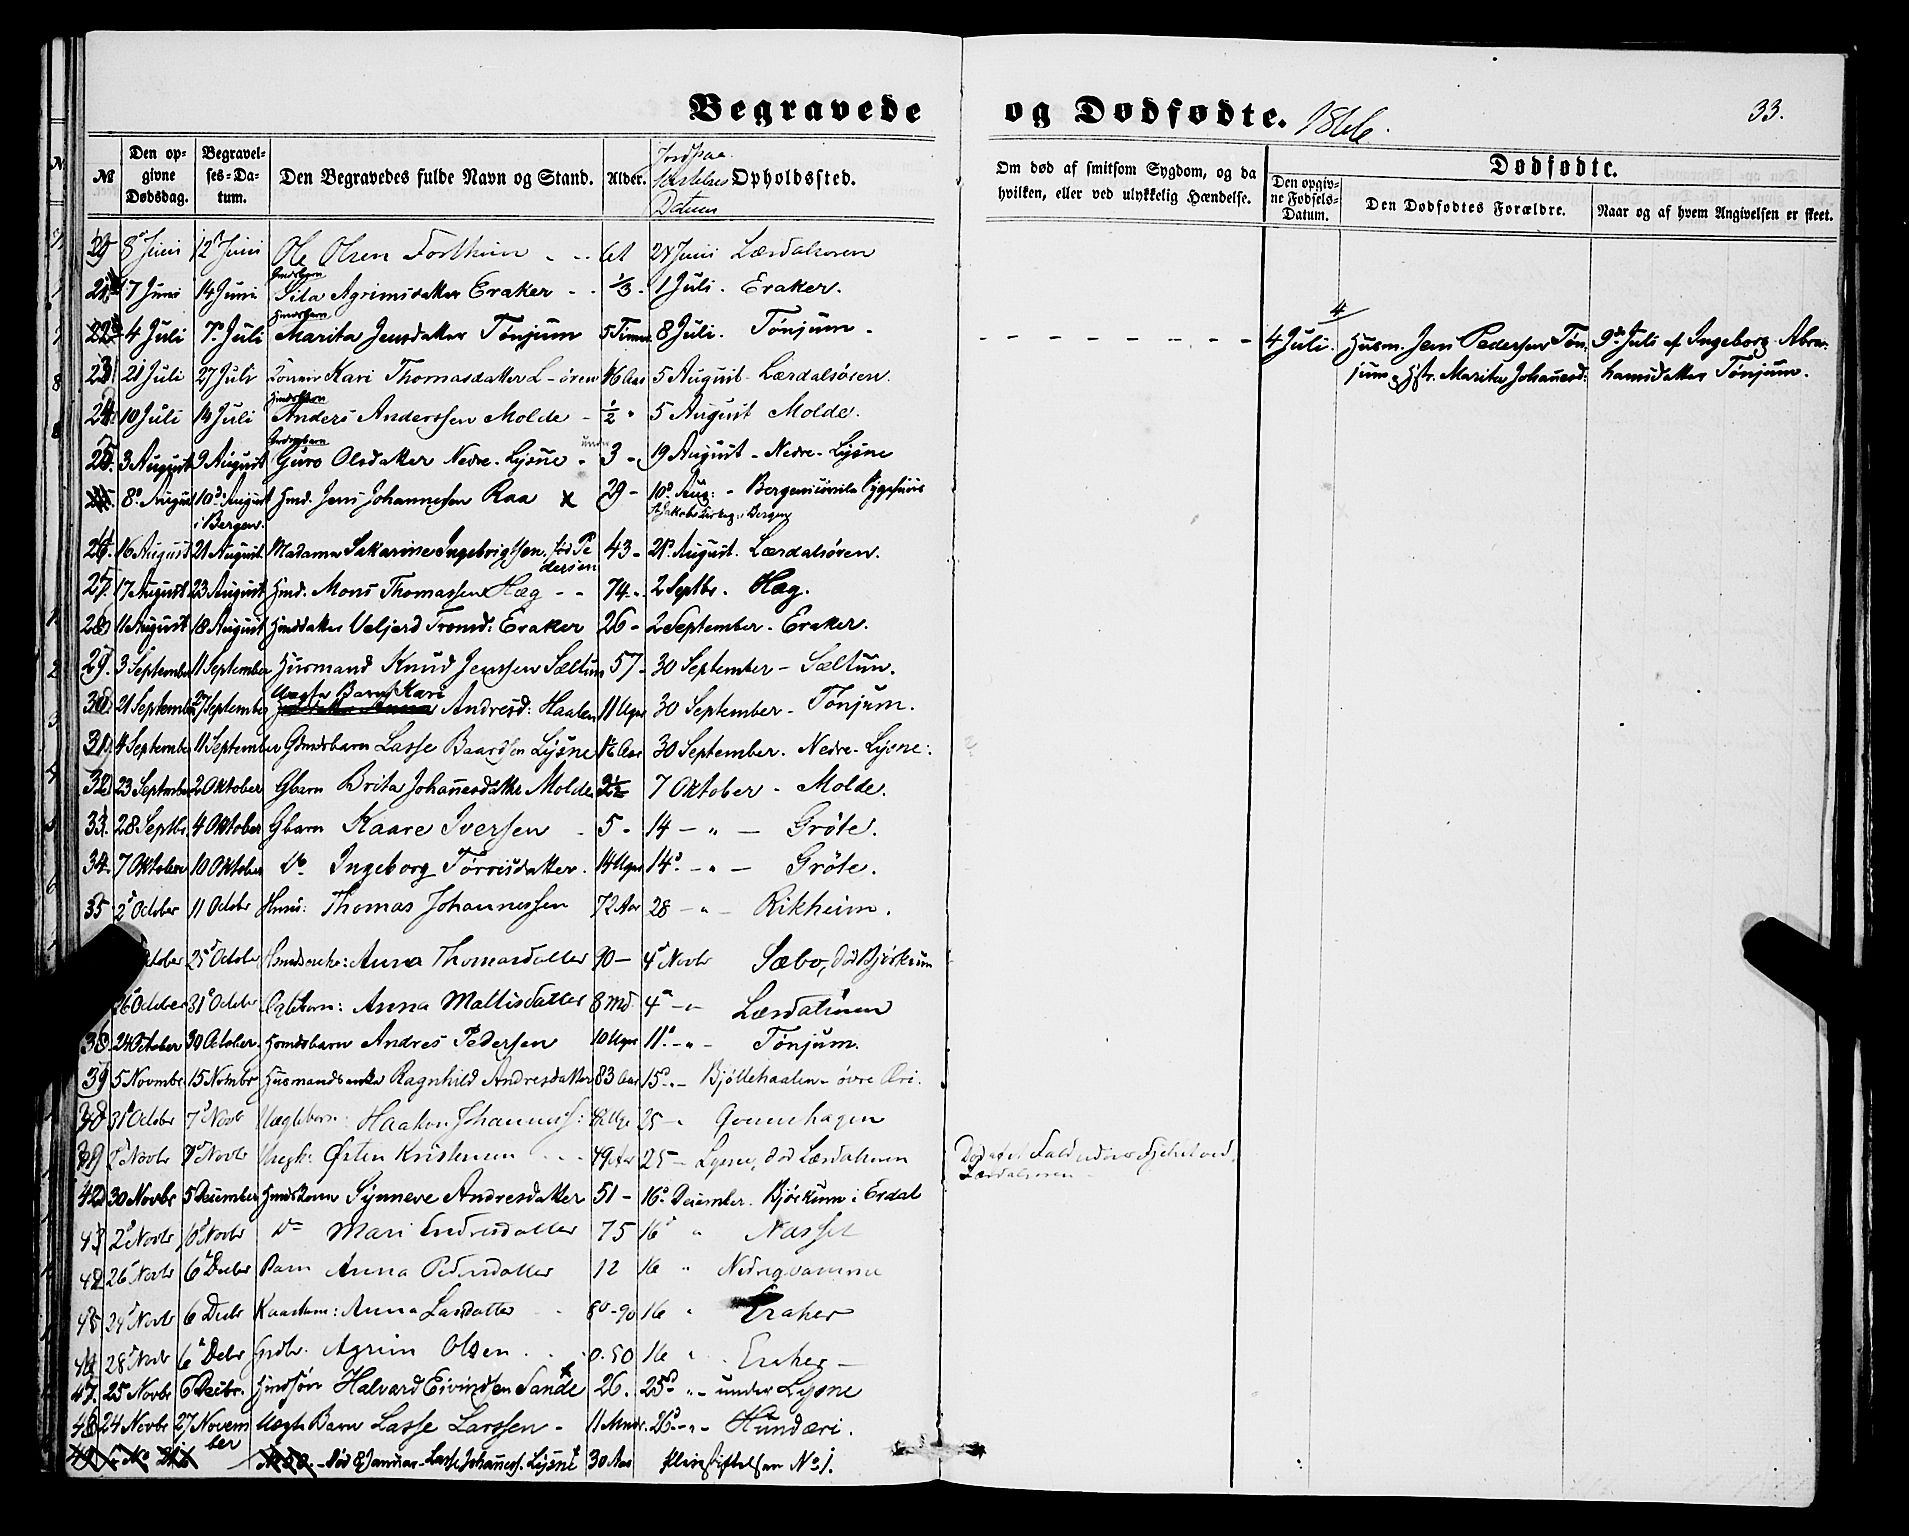 Begravede og Dødfødte. 1866. 33.
№ Den opgivne Dødsdag. Begravelses-Datum. Den Begravedes fulde Navn og Stand. Alder. Jordpaa Datum Opholdssted. Om død af smitsom Sygdom, og da hvilken, eller ved ulykkelig Hændelse. Dødfødte. Den opgivne Fødsels-Datum. Den Dødfødtes Forældre. Naar og af hvem Angivelsen er skeet.
20 8 Juni 12 Juni Ole Olsen 61 24 Juni Lærdalsøren
21 7 Juni 14 Juni Gmdsbarn Sila Agrimsdatter Eraker 1/3 1 Juli. Eraker.
22 4 Juli 7. Juli Hmdsbarn Marita Jensdatter Tønjum 5 Timer 8 Juli. Tønjum - 4 Juli. Husm. Jens Pedersen Tøn- 9de Juli af Ingeborg Abra-
jum og Hstr. Marita Johanesd: hamsdatter Tønjum.
23 21 Juli 27 Juli Kari Thomasdatter L-øren 46 Aar 5 August Lærdalsøren.
24. 10 Juli 14 Juli Hmdsbarn Anders Anderssen Molde 1/2 " 5 August Molde.
25. 3 August 9 August Gmdsbarn Guro Olsdatter Nedre-Lysne - under 3 - 19 August - Nedre-Lysne
8 August 10 August i Bergen. Hmd. Jens Johannessen Raa x 29 - 10. Aug: - Bergens civile Sygehuus
26. 16 August 21 August. Madame Sakarine Ingebrigtsen, fød Pe
dersen 43 - 21. August. Lærdalsøren.
27. 17 August 23 August Hmd. Mons Thomassen Hæg - - 74 - 2 Septbr. Hæg.
28 11 August 18 August Hmddatter Veljerd Tromd: Eraker 26 - 2 September - Eraker.
29. 3 September 11 September Husmand Knud Jenssen Sæltun 57 - 30 September - Sæltun.
30. 21 September 27 September Uægte Barn Kari Andresd: Haalen 11 Uger 30 September - Tønjum.
31. 4 September 11 September Gmdsbarn Lasse Baardsen Lysne 16 Aar 30 September. Nedre-Lysne.
32. 23 September 2 Oktober Gbarn Brita Johanesdatter Molde 2½ 7 Oktober - Molde.
33. 28 Septbr. 4 Oktober Gbarn Kaare Iversen 5 - 14 - " - Grøte.
34. 7 Oktober 10 Oktober do Ingeborg Torrisdatter. 14 Uger 14. - " - Grøte.
35 2 October 11 Octobr Hmd: Thomas Johannessen 72 Aar 28 - " - Rikheim.
October 25 October Hmdsenke: Anna Thomasdatter 90 - 4 Novbr Sæbo, død Bjørkum
26 October 31 Octobr Anna Mattisdatter 8 Md. 4 - " - Lærdalsøren
38 24 October 30 October. Hsmdsbarn Andres Pedersen 10 Uger 11. - " - Tønjum.
39 5 Novmbr 15 Novmbr Husmandsenke Ragnhild Andresdatter 83 Aar 15. - " - Bjøllehaalen - øvre Øri.
40 31 Octobr 7 Novbr Uægtebarn: Haakon Johanness: Uge 25 " Qvennehagen
Novbr 7 Novbr Ungk: Østen Kristensen 49 Aar 25 - Lysne, død Lærdalsøren Død af et Fald udover Fjeldet ved Lærdalsøren
42 30 Novbr 5 December Hmdskone Synneve Andresdatter 51 - 16. December. Bjørkum i Erdal
43 2 Novbr 6 Novbr do Mari Endresdatter 75 16 " Næsset
26 Novbr 6 Decbr Barn Anna Pedersdatter 12 16 " Nedreqvamme
45 24 Novbr 6 Decbr Anna Larsdatter 80-90 16 " Eraker
28 Novbr 6 Debr Agrim Olsen 0.50 16 " Eraker -
47. 25 Novbr 6 Decbr. Hmdssøn Halvard Eivindsen Sande 26. 25. " - under Lysne
48 24 Novbr 27 November Uægte Barn Lasse Larssen - 11 Mndr. 26. - " - Hundæri.
№ 50. - Død 8 Januar - Lasse Johaness. Lysne 30 Aar Pleiestiftelsen No 1.